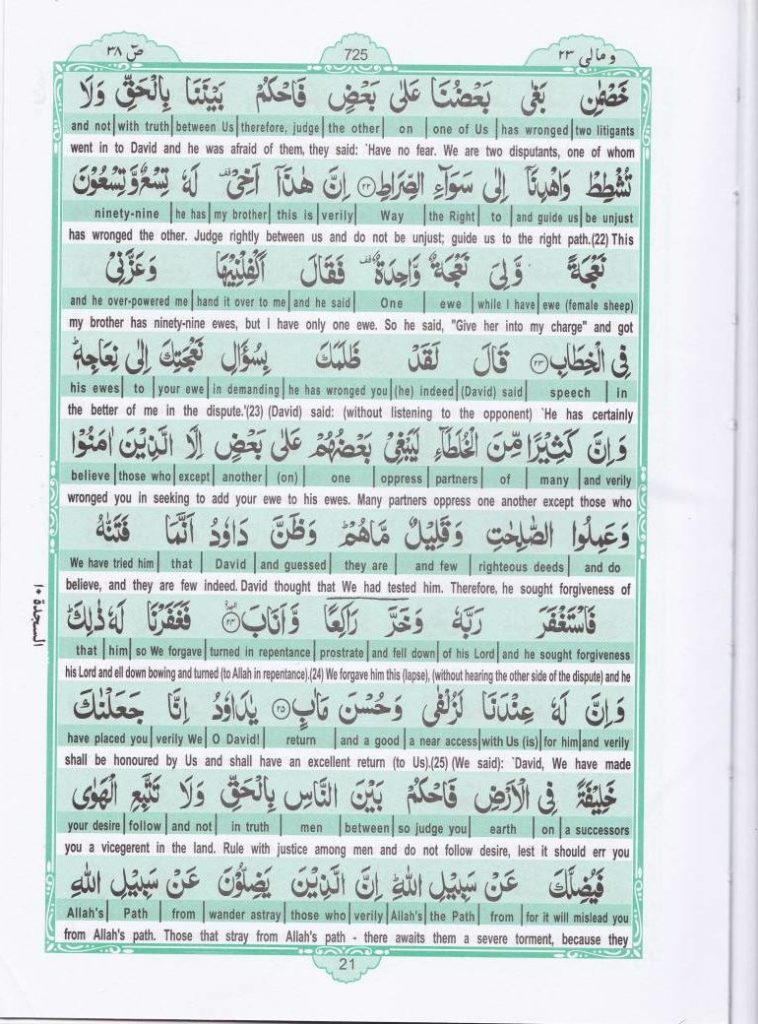 صٓ ٣٨ 725 وَمَالِیَ ٢٣
خَصْمٰنِ بَغٰى بَعْضُنَا عَلٰى بَعْضٍ فَاحْكُمْ بَيْنَنَا بِالْحَقِّ وَلَا
and not | with truth | between Us | therefore, judge | the other | on | one of Us | has wronged | two litigants
went in to David and he was afraid of them, they said: `Have no fear. We are two disputants, one of whom
تُشْطِطْ وَاهْدِنَاۤ اِلٰى سَوَآءِ الصِّرَاطِ ﴿٢٢﴾ اِنَّ هٰذَاۤ اَخِيْ ۟ لَهٗ تِسْعٌ وَّتِسْعُوْنَ
ninety-nine | he has | my brother | this is | verily | Way | the Right | to | and guide us | be unjust
has wronged the other. Judge rightly between us and do not be unjust; guide us to the right path.(22) This
نَعْجَةً وَّلِيَ نَعْجَةٌ وَّاحِدَةٌ ۟ فَقَالَ اَكْفِلْنِيْهَا وَعَزَّنِيْ
and he over-powered me | hand it over to me | and he said | One | ewe | while I have | ewe (female sheep)
my brother has ninety-nine ewes, but I have only one ewe. So he said, "Give her into my charge" and got
فِي الْخِطَابِ ﴿٢٣﴾ قَالَ لَقَدْ ظَلَمَكَ بِسُؤَالِ نَعْجَتِكَ اِلٰى نِعَاجِهٖ ؕ
his ewes | to | your ewe | in demanding | he has wronged you | (he) indeed | (David) said | speech | in
the better of me in the dispute.'(23) (David) said: (without listening to the opponent) `He has certainly
وَاِنَّ كَثِيْرًا مِّنَ الْخُلَطَآءِ لَيَبْغِيْ بَعْضُهُمْ عَلٰى بَعْضٍ اِلَّا الَّذِيْنَ اٰمَنُوْا
believe | those who | except | another | (on) | one | oppress | partners | of | many | and verily
wronged you in seeking to add your ewe to his ewes. Many partners oppress one another except those who
وَعَمِلُوا الصّٰلِحٰتِ وَقَلِيْلٌ مَّا هُمْ ؕ وَظَنَّ دَاوٗدُ اَنَّمَا فَتَنّٰهُ
We have tried him | that | David | and guessed | they are | and few | righteous deeds | and do
believe, and they are few indeed. David thought that We had tested him. Therefore, he sought forgiveness of
فَاسْتَغْفَرَ رَبَّهٗ وَخَرَّ رَاكِعًا وَّاَنَابَ ﴿٢٤﴾ فَغَفَرْنَا لَهٗ ذٰلِكَ ؕ
that | him | so We forgave | turned in repentance | prostrate | and fell down | of his Lord | and he sought forgiveness
السجدة ١٠
his Lord and ell down bowing and turned (to Allah in repentance).(24) We forgave him this (lapse), (without hearing the other side of the dispute) and he
وَاِنَّ لَهٗ عِنْدَنَا لَزُلْفٰى وَحُسْنَ مَاٰبٍ ﴿٢٥﴾ يٰدَاوٗدُ اِنَّا جَعَلْنٰكَ
have placed you | verily We | O David! | return | and a good | a near access | with Us (is) | for him | and verily
shall be honoured by Us and shall have an excellent return (to Us).(25) (We said): `David, We have made
خَلِيْفَةً فِي الْاَرْضِ فَاحْكُمْ بَيْنَ النَّاسِ بِالْحَقِّ وَلَا تَتَّبِعِ الْهَوٰى
your desire | follow | and not | in truth | men | between | so judge you | earth | on | a successors
you a vicegerent in the land. Rule with justice among men and do not follow desire, lest it should err you
فَيُضِلَّكَ عَنْ سَبِيْلِ اللّٰهِ ؕ اِنَّ الَّذِيْنَ يَضِلُّوْنَ عَنْ سَبِيْلِ اللّٰهِ
Allah's | Path | from | wander astray | those who | verily | Allah's | the Path | from | for it will mislead you
from Allah's path. Those that stray from Allah's path - there awaits them a severe torment, because they
21